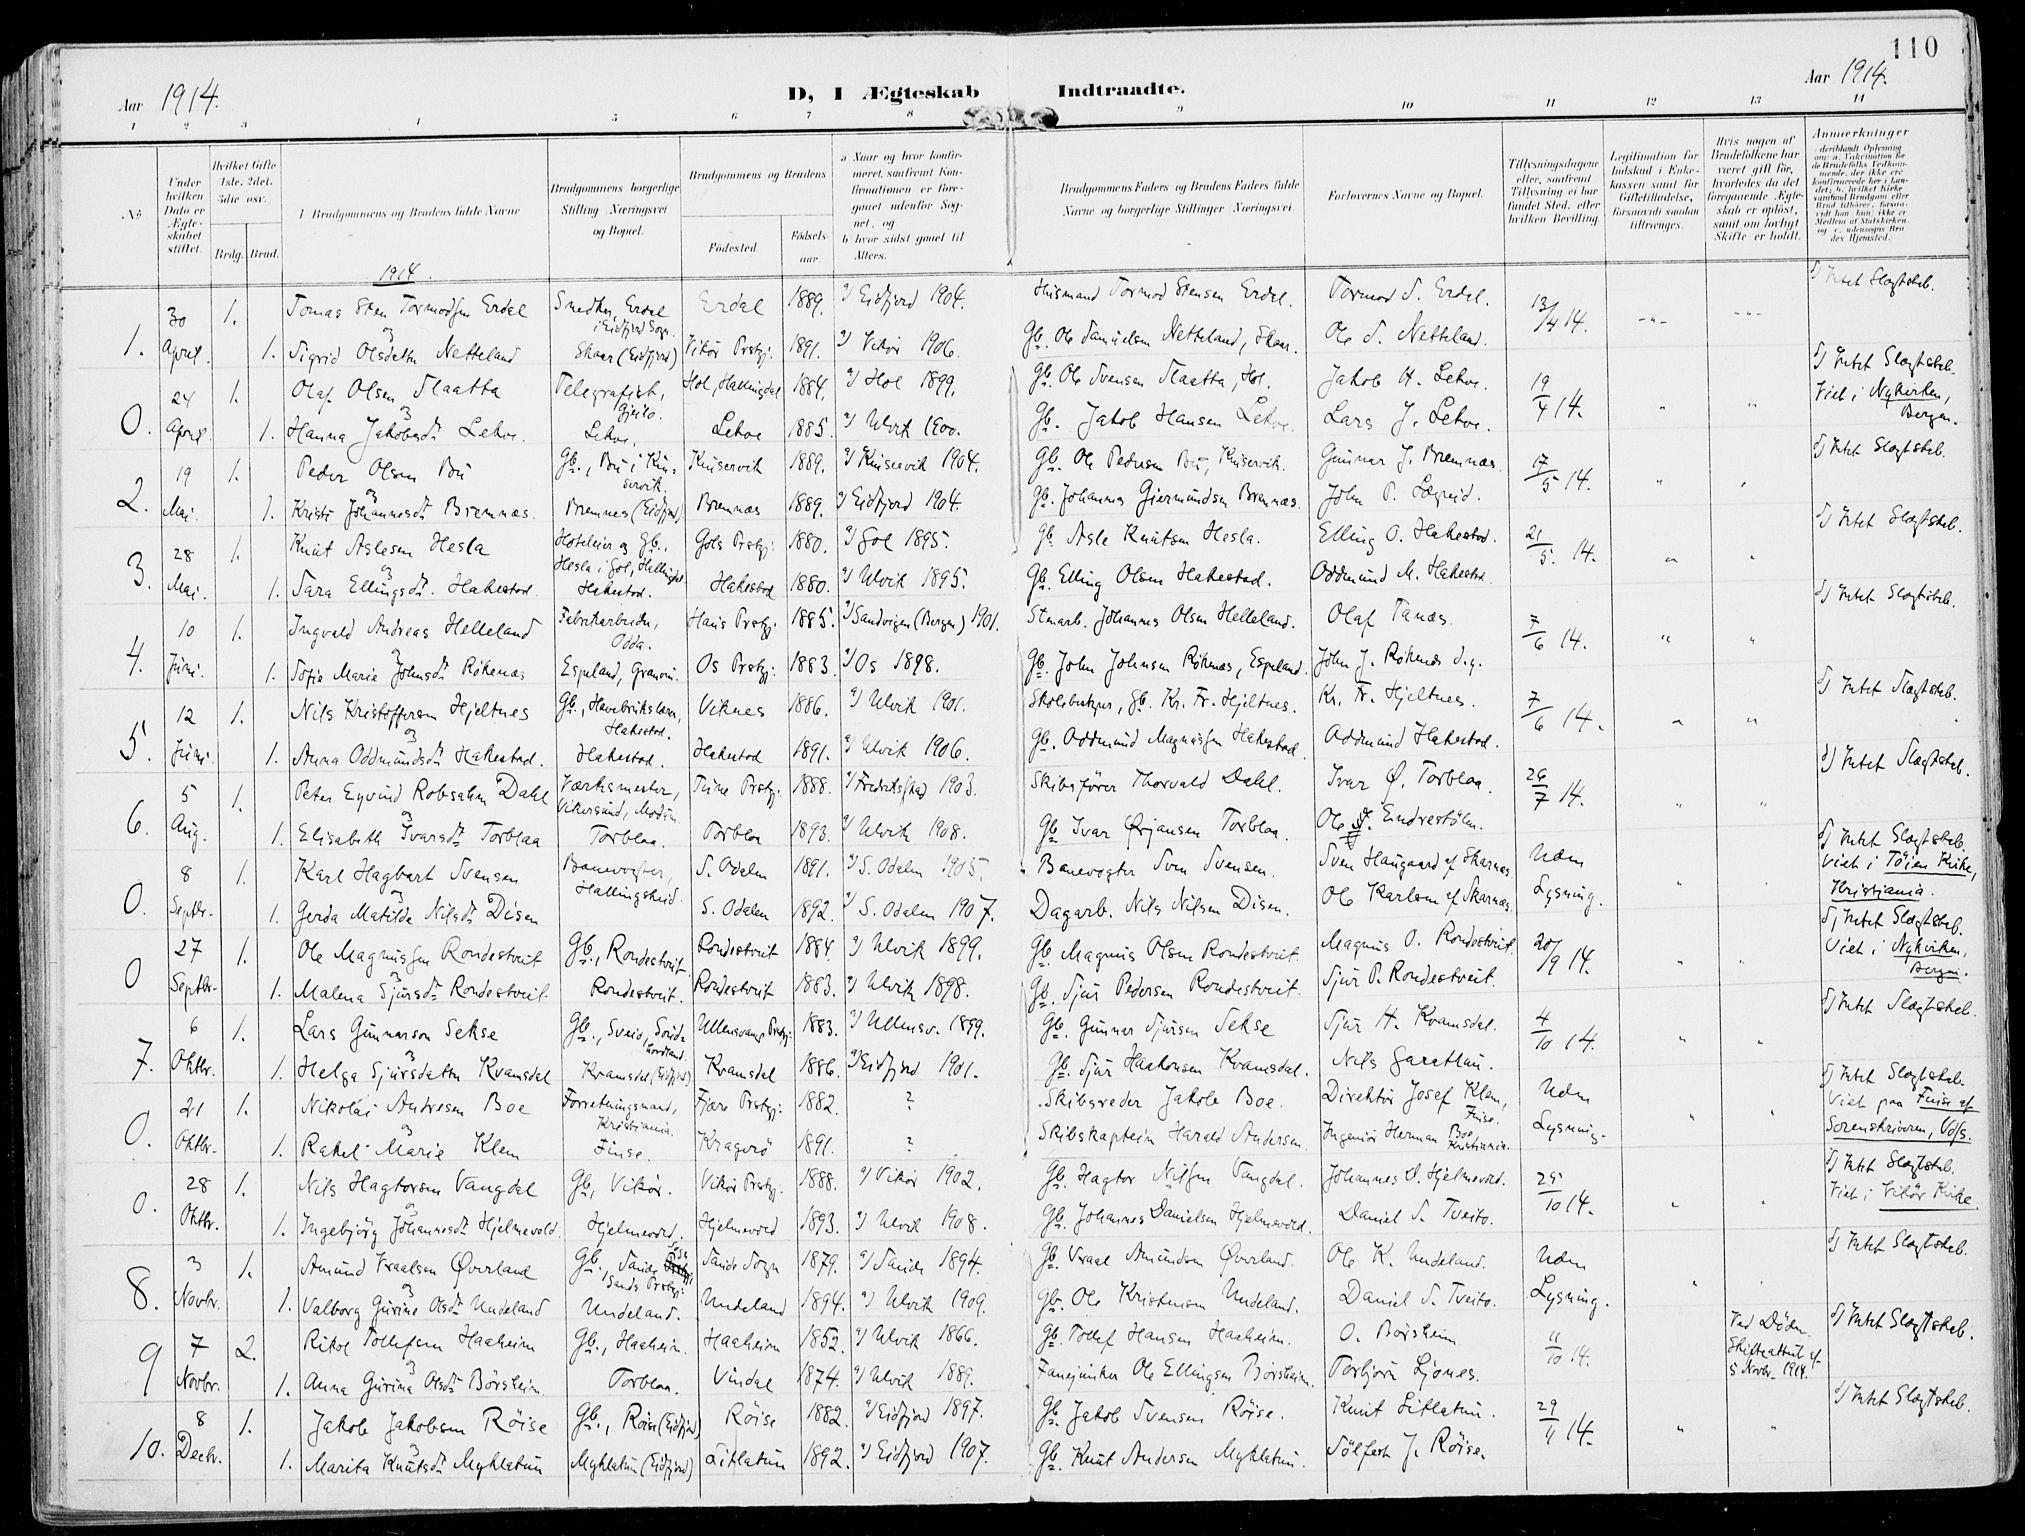 110
Aar 1914.
D, I Ægteskab Indtraadte.
Aar 1914.
1 2 3 4 5 6 7 8 9 10 11 12 13 14
No
Under hvilken Dato er Ægteskabet stiftet.
Hvilket Gifte 1ste, 2det, 3die osv.
Brdg. Brud.
Brudgommens og Brudens fulde Navne
Brudgommens borgerlige Stilling Næringsvei og Bopæl.
Brudgommens og Brudens
Fødested.
Fødselsaar.
a Naar og hvor konfirmeret, saafremt Konfirmationen er foregaaet udenfor Sognet, og
b hvor sidst gaaet til Alters.
Brudgommens Faders og Brudens Faders fulde Navne og borgerlige Stillinger Næringsvei.
Forlovernes Navne og Bopæl.
Tillysningsdagene eller, saafremt Tillysning ei har fundet Sted, efter hvilken Bevilling
Legitimation for Indskud i Enkekassen samt for Giftetilladelse, forsaavidt saadan tiltrænges.
Hvis nogen af Brudefolkene har været gift før, hvorledes da det foregaaende Ægteskab er opløst, samt om lovligt Skifte er holdt.
Anmærkninger
1914.
1. 30 April. 1. Tomas Sten Tormodsen Erdal Snedker, Erdal i Eidfjord Sogn. Erdal 1889. a) Eidfjord 1904. Husmand Tormod Stensen Erdal. Tormod S. Erdal. 13/4 14. d) Intet Slægtskb.
og
1. Sigrid Olsdatter Netteland Skaar (Eidfjord) Vikør Prstgj. 1891. a) Vikør 1906. Gb. Ole Samuelsen Netteland, Skaar. Ole S. Netteland.
0. 24 April. 1. Olaf Olsen Slaatta Telegrafist, Gjeilo. Hol, Hallingdal 1884. a) Hol 1899. Gb. Ole Svensen Slaatta, Hol. Jakob H. Lekve. 19/4 14. d) Intet Slægtskb. Viet i Nykirken, Bergen.
og
1. Hanna Jakobsdt. Lekve. Lekve. Lekve 1885. a) Ulvik 1900. Gb. Jakob Hansen Lekve. Lars J. Lekve.
2. 19 Mai. 1. Peder Olsen Bu Gb., Bu i Kinservik. Kinservik 1889. a) Kinservik 1904. Gb. Ole Pedersen Bu, Kinservik. Gunnar J. Bremnæs. 17/5 14. d) Intet Slægtskb.
og
1. Kristi Johannesdt. Bremnæs. Bremnes (Eidfjord) Bremnæs 1889. a) Eidfjord 1904. Gb. Johannes Giermundsen Bremnæs. John P. Lægreid.
3. 28 Mai. 1. Knut Aslesen Hesla Hoteleier og Gb., Hesla i Gol, Hallingdal. Gols Prstgj. 1880. a) Gol 1895. Gb. Asle Knutsen Hesla. Elling O. Hakestad. 21/5. 14. d) Intet Slægtskb.
og
1. Sara Ellingsdt. Hakestad. Hakestad. Hakestad 1880. a) Ulvik 1895. Gb. Elling Olsen Hakestad. Oddmund M. Hakestad.
4. 10 Juni. 1. Ingvald Andreas Helleland Fabrikarbeider, Odda. Haus Prstgj. 1885. a) Sandvigen (Bergen) 1901. Stenarb. Johannes Olsen Helleland. Olaf Tanæs. 7/6 14. d) Intet Slægtskb.
og
1. Sofie Marie Johnsdt. Røkenæs Espeland, Granvin. Os Prstgj. 1883 a) Os 1898. Gb. John Johnsen Røkenæs, Espeland. John J. Røkenæs d.y.
5. 12 Juni. 1. Nils Kristoffersen Hjeltnes Gb., Havebrukslærer, Hakestad. Viknes 1886. a) Ulvik 1901. Skolebestyrer, Gb. Kr. Fr. Hjeltnes. Kr. Fr. Hjeltnes. 7/6 14. d) Intet Slægtskb.
og
1. Anna Oddmundsdt. Hakestad. Hakestad. Hakestad 1891. a) Ulvik 1906. Gb. Oddmund Magnussen Hakestad. Oddmund Hakestad.
6. 5 Aug. 1. Peter Eyvind Robsahm Dahl Værksmester, Vikersund, Modum. Tune Prstgj. 1888. a) Fredrikstad 1903. Skibsfører Thorvald Dahl. Ivar Ø. Torblaa. 26/7 14. d) Intet Slægtskb.
og
1. Elisabeth Ivarsdt. Torblaa Torblaa. Torblaa 1893. a) Ulvik 1908. Gb. Ivar Ørjansen Torblaa. Ole Endrestøln.
0. 8 Septbr. 1. Karl Hagbart Svensen Banevogter, Hallingskeid. S. Odalen 1891. a) S. Odalen 1905. Banevogter Sven Svensen. Sven Haugaard af Skarnæs Uden Lysning. d) Intet Slægtskb. Viet i Tøien Kirke, Kristiania.
og
1. Gerda Matilde Nilsdt. Disen S. Odalen 1892. a) S. Odalen 1907. Dagarb. Nils Nilsen Disen. Ole Karlsen af Skarnæs.
0 27 Septbr. 1. Ole Magnussen Rondestveit Gb., Rondestveit. Rondestveit 1884. a) Ulvik 1899. Gb. Magnus Olsen Rondestveit. Magnus O. Rondestveit. 20/9 14. d) Intet Slægtskb. Viet i Nykirken, Bergen.
og
1. Malena Sjursdt. Rondestveit. Rondestveit. Rondestveit 1883. a) Ulvik 1898. Gb. Sjur Pedersen Rondestveit. Sjur P. Rondestveit.
7. 6 Oktbr. 1. Lars Gunnarson Sekse Gb., Sveio, Søndhordland. Ullensvangs Prstgj. 1883. a) Ullensv. 1899. Gb. Gunnar Sjursen Sekse Sjur H. Kvamsdal. 4/10 14. d) Intet Slægtskb.
og
1. Helga Sjursdatter Kvamsdal Kvamsdal (Eidfjord) Kvamsdal 1886. a) Eidfjord 1901. Gb. Sjur Haakonsen Kvamsdal. Nils Garathun.
0. 21 Oktbr. 1. Nikolai Andresen Boe Forretningsmand, Kristiania. Fjære Prstgj. 1882. ? Skibsreder Jakob Boe. Direktør Josef Klem, Finse. Uden Lysning. d) Intet Slægtskb. Viet paa Finse af Sorenskriveren, Voss.
og
1. Rakel Marie Klem Finse. Kragerø 1891. ? Skibskaptein Harald Andersen. Ingeniør Herman Boe Kristiania.
0. 28 Oktbr. 1. Nils Hagtorsen Vangdal Gb, Vikør. Vikør Prstgj. 1888. a) Vikør 1902. Gb. Hagtor Nilsen Vangdal. Johannes D. Hjelmevold. 25/10 14. d) Intet Slægtskb. Viet i Vikør Kirke.
og
1. Ingebjørg Johannesdt. Hjelmevold. Hjelmevold. Hjelmevold 1893. a) Ulvik 1908. Gb. Johannes Danielsen Hjelmevold. Daniel S. Tveito.
8. 3 Novbr. 1. Amund Vraalsen Øverland Gb., Sande Sogn Sands Prstgj. Sande Sogn 1879. a) Sande 1894. Gb. Vraal Amundsen Øverland. Ole K. Undeland. Uden Lysning. d) Intet Slægtskb.
og
1. Valborg Gurine Olsdt. Undeland Undeland. Undeland 1894. a) Ulvik 1909. Gb. Ole Kristensen Undeland. Daniel S. Tveito.
9 7 Novbr. 2. Rikol Tollefsen Haaheim Gb., Haaheim. Haaheim 1852. a) Ulvik 1866. Gb. Tollef Hansen Haaheim. O. Børsheim 11/10 14. Ved Døden. Skifteattest af 5 Novbr. 1914. d) Intet Slægtskb.
og
1. Anna Gurina Olsdt. Børsheim. Torblaa. Vindal 1874. a) Ulvik 1889. Fanejunker Ole Ellingsen Børsheim. Torbjørn Ljones.
10. 8 Decbr. 1. Jakob Jakobsen Røise Gb., Røise (Eidfjord) Røise 1882. a) Eidfjord 1897. Gb. Jakob Svensen Røise. Knut Litlatun. 29/11 14. d) Intet Slægtskb.
og
1. Marita Knutsdt. Myklatun Myklatun (Eidfjord) Litlatun 1892. a) Eidfjord 1907. Gb. Knut Andersen Myklatun. Sølfest J. Røise.